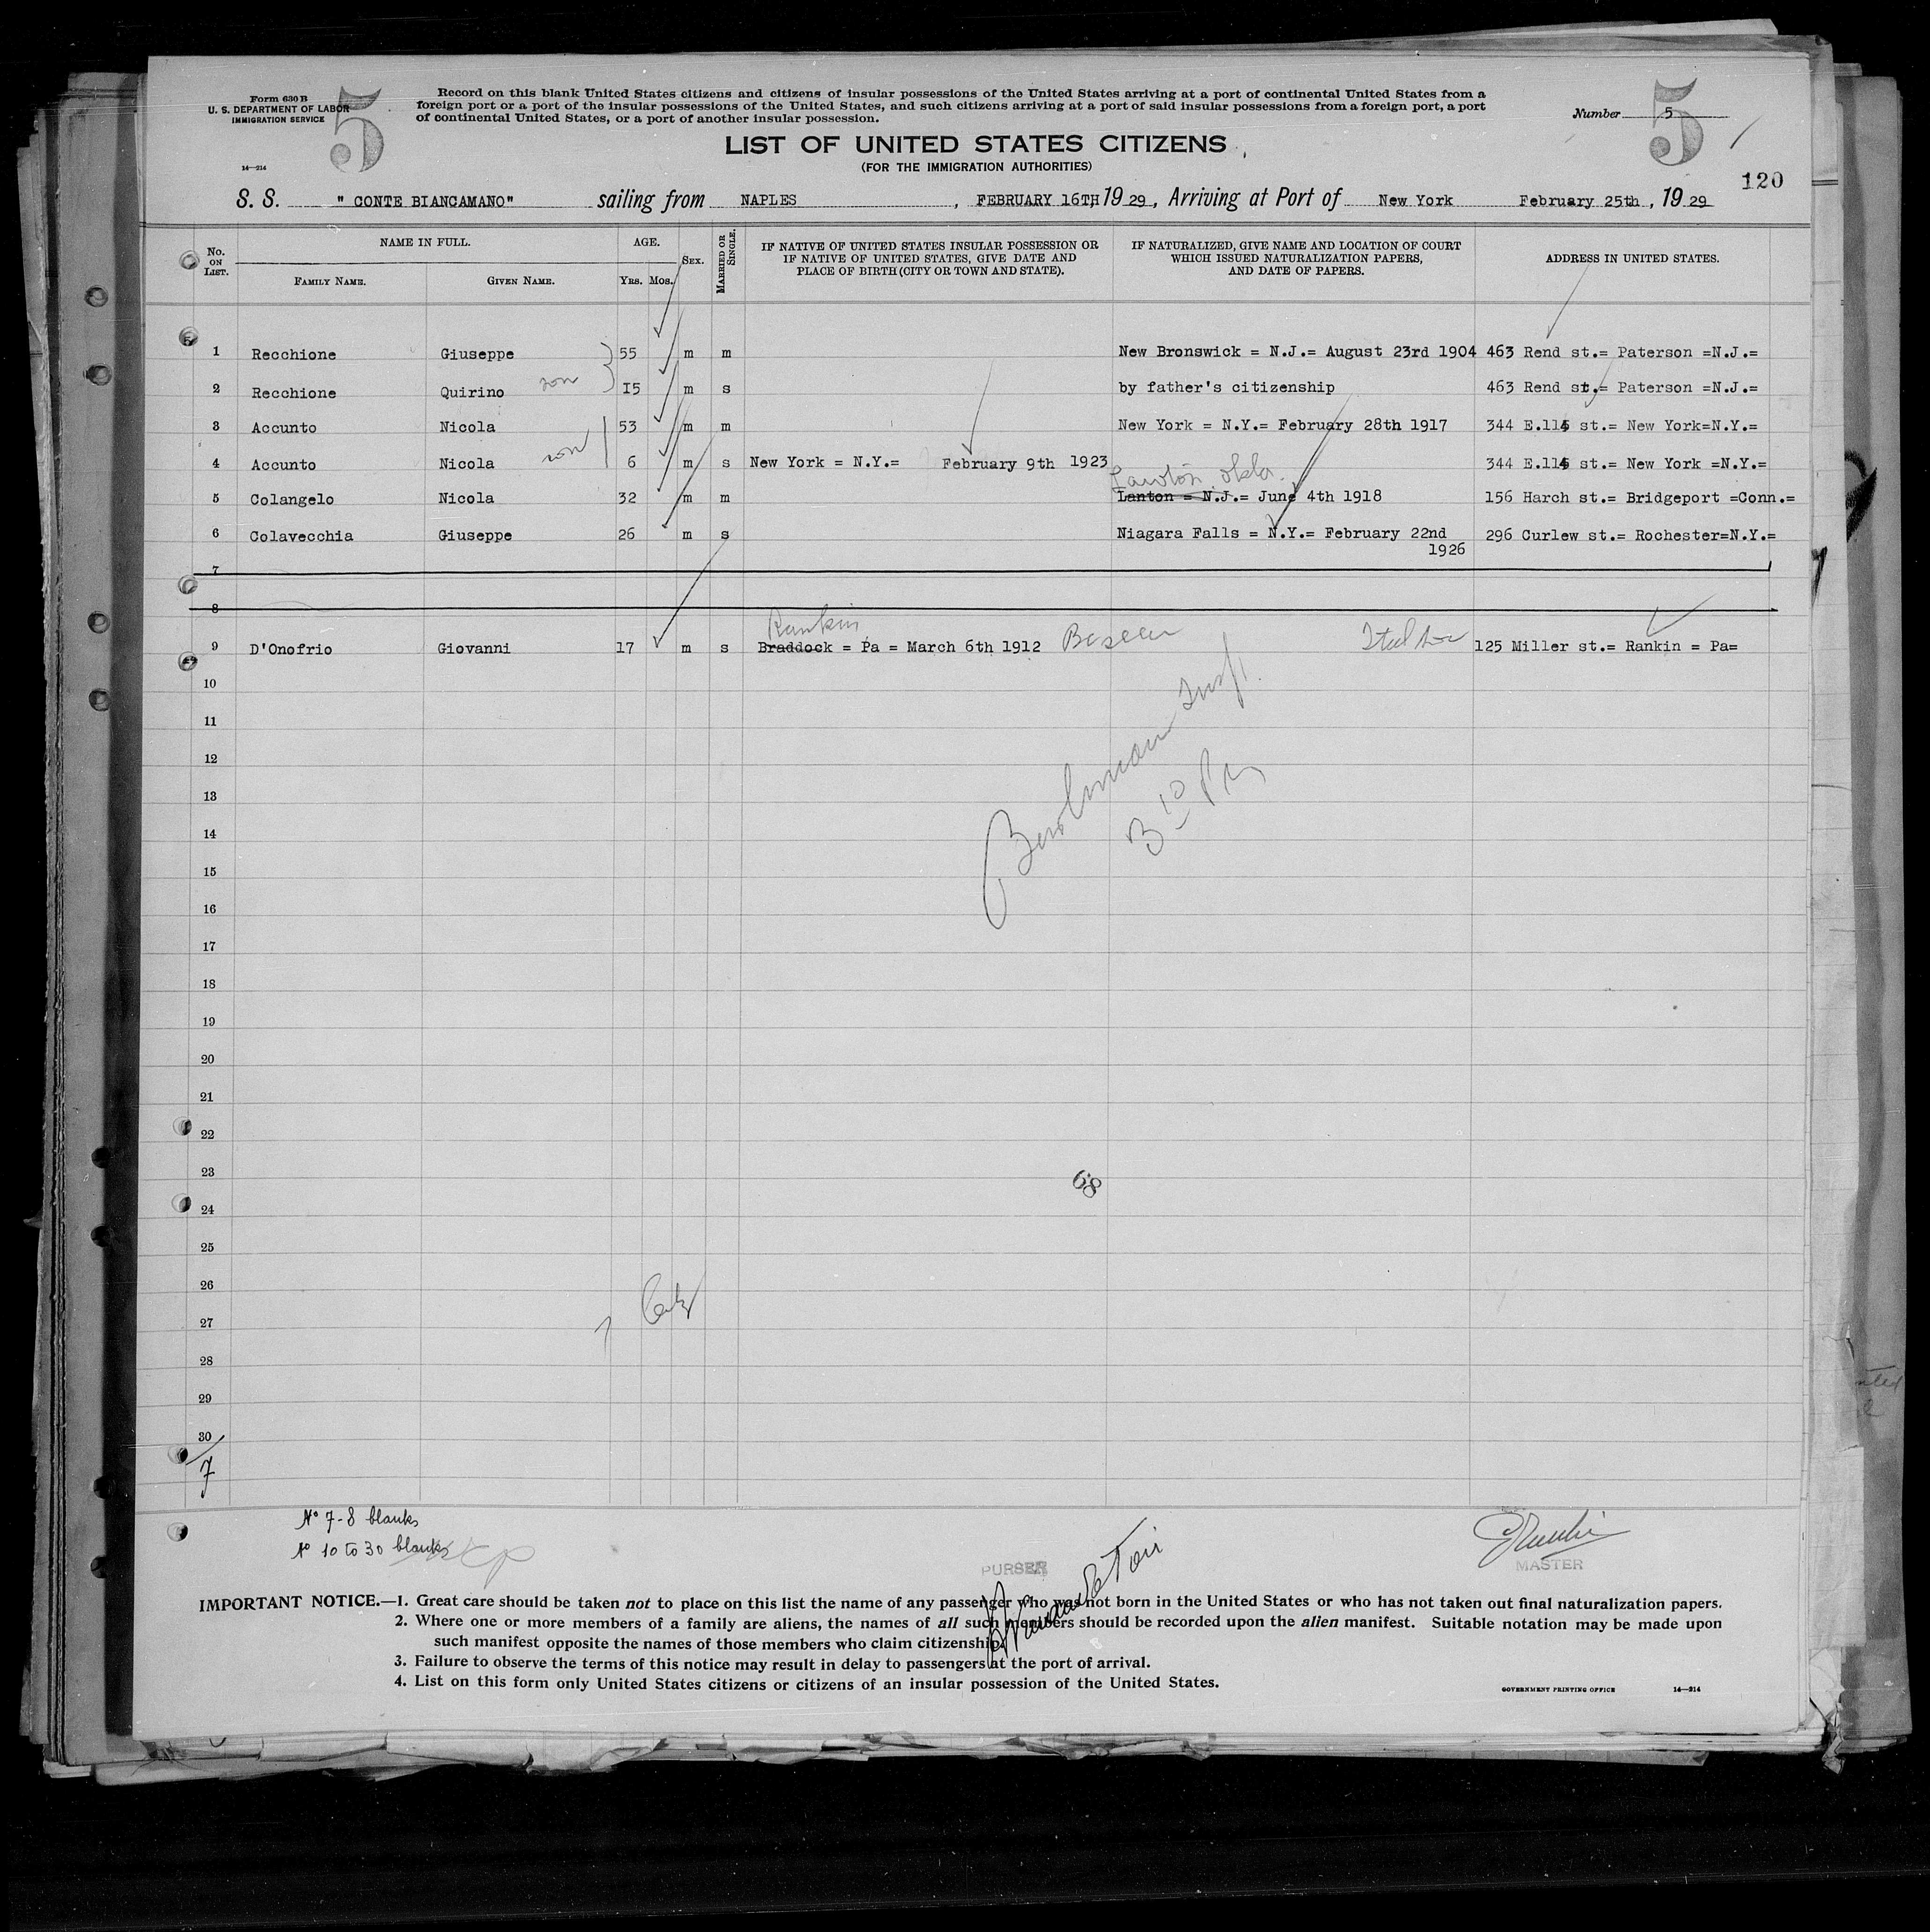 Form 630 B
U. S. DEPARTMENT OF LABOR
IMMIGRATION SERVICE
14—214
5
Record on this blank United States citizens and citizens of insular possessions of the United States arriving at a port of continental United States from a
foreign port or a port of the insular possessions of the United States, and such citizens arriving at a port of said insular possessions from a foreign port, a port
of continental United States, or a port of another insular possession.
Number 5
5
LIST OF UNITED STATES CITIZENS
(FOR THE IMMIGRATION AUTHORITIES)
120
S. S. " CONTE BIANCAMANO" sailing from NAPLES, FEBRUARY 16TH 1929, Arriving at Port of New York February 25th, 1929
No. ON LIST.
NAME IN FULL.
FAMILY NAME. GIVEN NAME.
AGE.
YRS. MOS.
SEX.
MARRIED OR SINGLE.
IF NATIVE OF UNITED STATES INSULAR POSSESSION OR
IF NATIVE OF UNITED STATES, GIVE DATE AND
PLACE OF BIRTH (CITY OR TOWN AND STATE).
IF NATURALIZED, GIVE NAME AND LOCATION OF COURT
WHICH ISSUED NATURALIZATION PAPERS,
AND DATE OF PAPERS.
ADDRESS IN UNITED STATES.
1 Recchione Giuseppe 55 m m New Bronswick = N.J.= August 23rd 1904 463 Rend st.= Paterson =N.J.=
2 Recchione Quirino son I5 m s by father's citizenship 463 Rend st.= Paterson =N.J.=
3 Accunto Nicola 53 m m New York = N.Y.= February 28th 1917 344 E.115 st.= New York=N.Y.=
4 Accunto Nicola son 6 m s New York = N.Y.= February 9th 1923 344 E.115 st.= New York =N.Y.=
Lawton, Okla.
5 Colangelo Nicola 32 m m Lanton = N.J.= June 4th 1918 156 Harch st.= Bridgeport =Conn.=
6 Colavecchia Giuseppe 26 m s Niagara Falls = N.Y.= February 22nd 296 Curlew st.= Rochester=N.Y.=
1926
7
8
Rankin
9 D'Onofrio Giovanni 17 m s Braddock = Pa = March 6th 1912 125 Miller st.= Rankin = Pa=
10
11
12
3 10 PM
13
14
15
16
17
18
19
20
21
22
23
68
24
25
26
27
28
29
30
7
No 7-8 blanks
No 10 to 30 blanks
PURSER
MASTER
IMPORTANT NOTICE.—1. Great care should be taken not to place on this list the name of any passenger who was not born in the United States or who has not taken out final naturalization papers.
2. Where one or more members of a family are aliens, the names of all such members should be recorded upon the alien manifest. Suitable notation may be made upon
such manifest opposite the names of those members who claim citizenship.
3. Failure to observe the terms of this notice may result in delay to passengers at the port of arrival.
4. List on this form only United States citizens or citizens of an insular possession of the United States.
GOVERNMENT PRINTING OFFICE 14—214